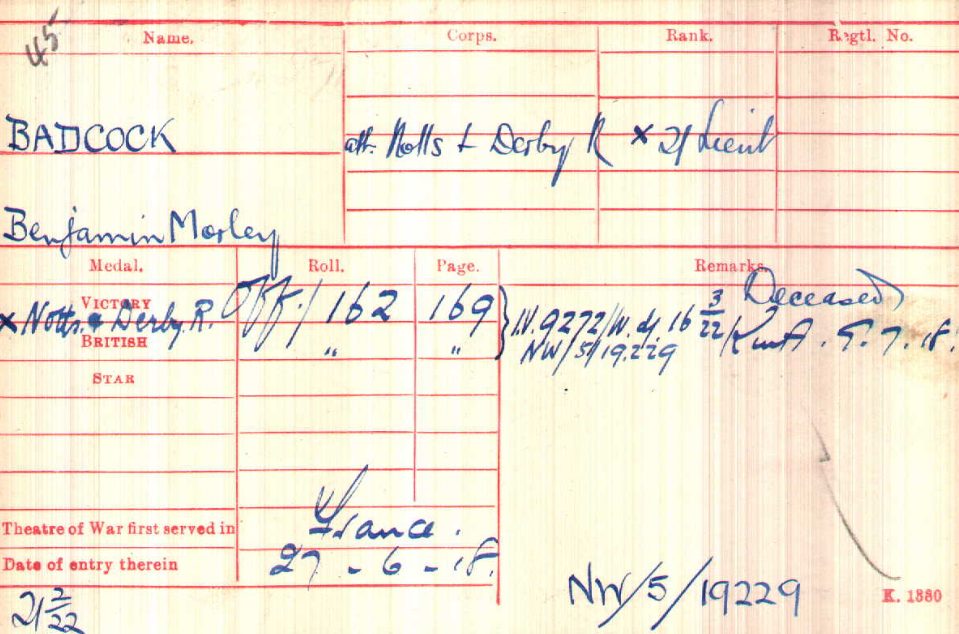 45
Name. Corps. Rank. Regtl. No.
BADCOCK att. Notts & Derby R × 2/Lieut
Benjamin Morley
Medal. Roll. Page. Remarks.
VICTORY
× Notts. & Derby. R. Off/ 162 169 } I.V. 9272/W. d/ 16 3/22 Deceased
BRITISH " " NW/5/19229 K in A. 9.7.18.
STAR
Theatre of War first served in France.
Date of entry therein 27-6-18.
2/2/22 NW/5/19229 K. 1380